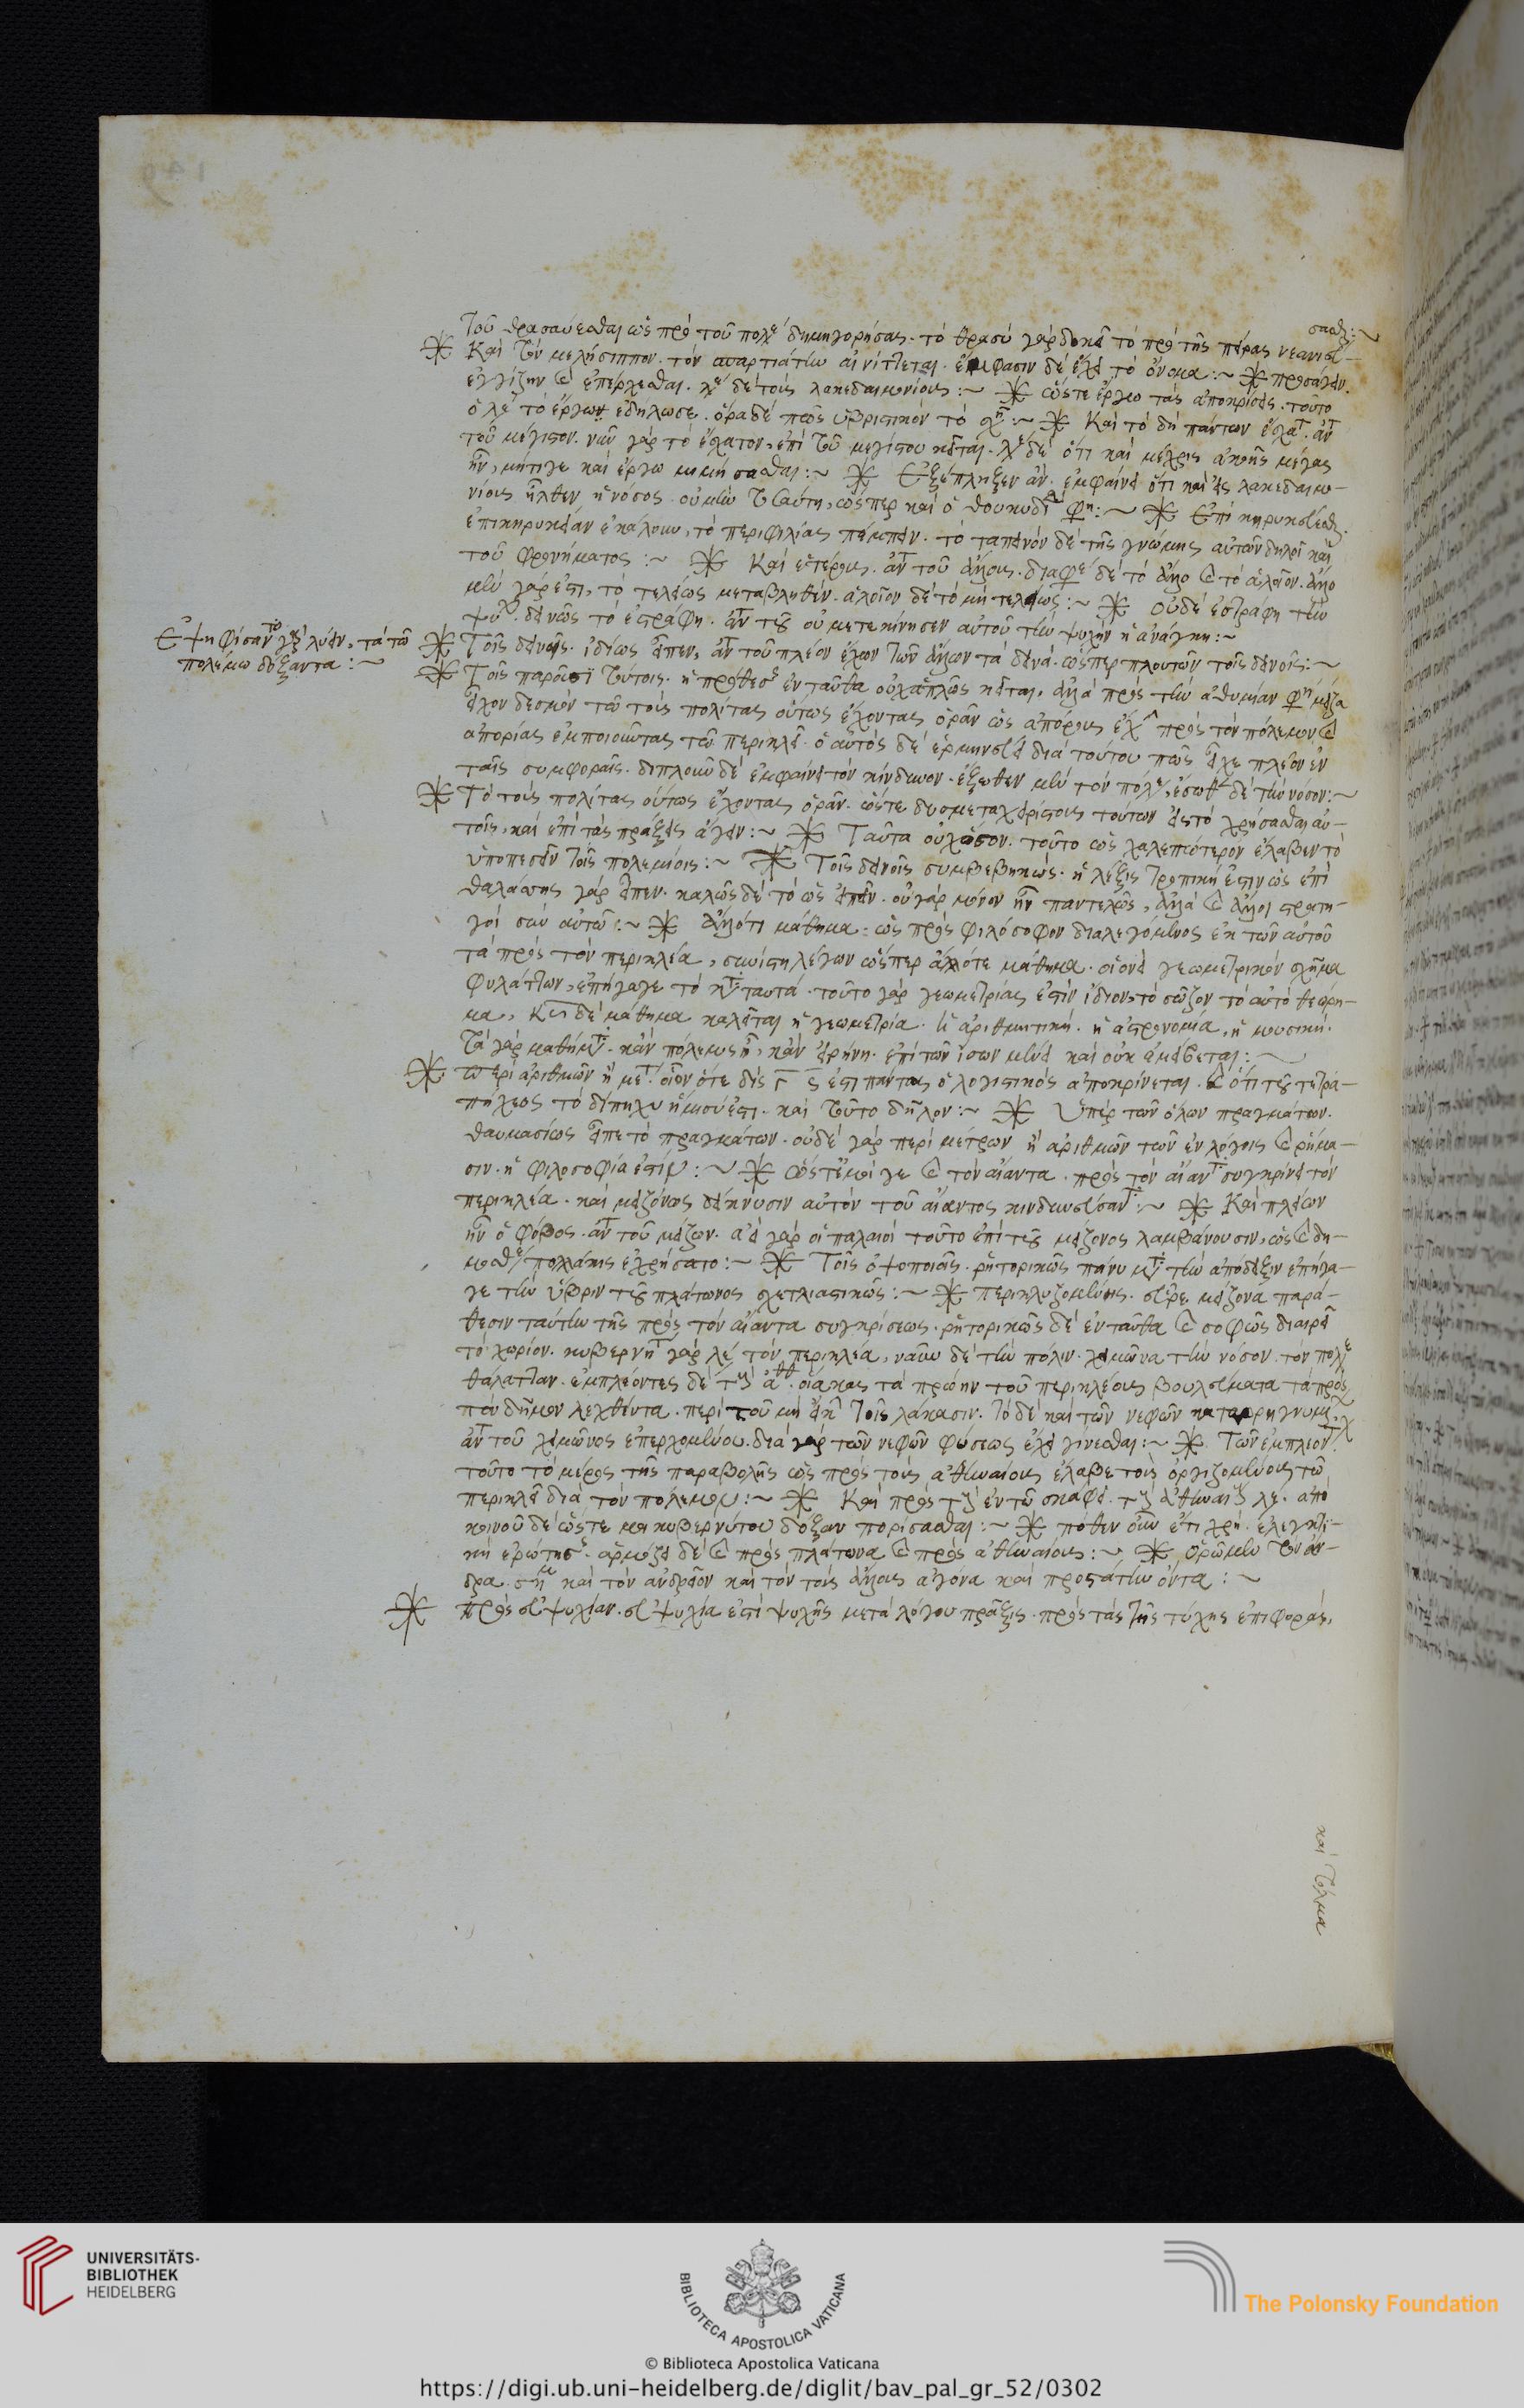 τοῦ θρασύνεσθαι ὡς πρὸ τοῦ πολέ δημηγορήσας. τὸ θρασὺ γὰρ δοκεῖ τὸ πρὸ τῆς πείρας νεανιεύ-
σασθ:~
Καὶ τὸν μελήσιππον. τὸν σπαρτιάτην αἰνίττεται. ἔμφασιν δὲ ἔχει τὸ ὄνομα:~ προσάγειν.
ἐγγίζειν καὶ ἐπέρχεσθαι. λέ δὲ τοὺς λακεδαιμονίους:~ ὥστε ἔργω τὰς ἀποκρίσεις. τοῦτο
τὸ ἔργων ἐδήλωσε. ὅρα δὲ πῶς ὑβριστικὸν τὸ σχῆ:~ Καὶ τὸ δὴ πάντων ἔσχατ. ἀντ
τοῦ μέγιστον. νῦν γὰρ τὸ ἔσχατον, ἐπὶ τοῦ μεγίστου κεῖται. λέ δὲ ὅτι καὶ μέχρις ἀκοῆς μέγας
ἦν, μήτιγε καὶ ἔργω μιμήσασθαι:~ Ἐξέπληξεν ἄν. ἐμφαίνει ὅτι καὶ εἰς λακεδαιμο-
νίους ἦλθεν ἡ νόσος. οὐ μὴν τοσαύτη, ὥσπερ καὶ ὁ θουκυδί φη:~ Ἐπικηρυκεύεσθ.
ἐπικηρυκείαν ἐκάλουν, τὸ περὶ φιλίας πέμπειν. τὸ ταπεινὸν δὲ τῆς γνώμης αὐτῶν δηλοῖ καὶ
τοῦ φρονήματος:~ Καὶ ἑτέρους. ἀντ τοῦ ἄλλους. διαφέ δὲ τὸ ἄλλο καὶ τὸ ἀλλοῖον. ἄλλο
μὲν γάρ ἐστι, τὸ τελείως μεταβληθέν. ἀλλοῖον δὲ τὸ μὴ τελείως:~ Οὐδὲ ἐστράφη τὴν
ψυχ. δεινῶς τὸ ἐστράφη. ἀντ τοῦ οὐ μετεκίνησεν αὐτοῦ τὴν ψυχὴν ἡ ἀνάγκη:~
Ἐψηφίσαντο γὰρ λύειν, τὰ τῶ
πολέμω δόξαντα:~
Τοῖς δεινοῖς. ἰδίως εἶπεν, ἀντ τοῦ πλέον ἔχων τῶν ἄλλων τὰ δεινά. ὥσπερ πλουτῶν τοῖς δεινοῖς:~
Τοῖς παροῦσι τούτοις. ἡ πρόθεσ ἐνταῦθα οὐχ ἁπλῶς κεῖται, ἀλλὰ πρὸς τὴν ἀθυμίαν φη μεῖζο
εἶχον δεσμὸν τῶ τοὺς πολίτας οὕτως ἔχοντας ὁρᾶν ὡς ἀπόρους ἔχ πρὸς τὸν πόλεμον καὶ
ἀπορίας ἐμποιοῦντας τῶ περικλεῖ. ὁ αὐτὸς δὲ ἑρμηνεύει διὰ τούτου πῶς εἶχε πλέον ἐν
ταῖς συμφοραῖς. διπλοῦν δὲ ἐμφαίνει τὸν κίνδυνον. ἔξωθεν μὲν τὸν πόλ, ἔσωθ δὲ τὴν νόσον:~
Τὸ τοὺς πολίτας οὕτως ἔχοντας ὁρᾶν. ὥστε δυσμεταχειρίστους τούτων εἰς τὸ χρήσασθαι αὐ-
τοῖς, καὶ ἐπὶ τὰς πράξεις ἄγειν:~ Ταῦτα οὐχ ὅσον. τοῦτο ὡς χαλεπώτερον ἔλαβεν τὸ
ὑποπεσεῖν τοῖς πολεμίοις:~ Τοῖς δεινοῖς συμβεβηκώς. ἡ λέξις τροπική ἐστιν ὡς ἐπὶ
θαλάσσης γὰρ εἶπεν. καλῶς δὲ τὸ ὡς εἰπεῖν. οὐ γὰρ μόνον ἦν παντελῶς, ἀλλὰ καὶ ἄλλοι στρατη-
γοὶ σὺν αὐτῶ:~ Ἄλλό τι μάθημα: ὡς πρὸς φιλόσοφον διαλεγόμενος ἐκ τῶν αὐτοῦ
τὰ πρὸς τὸν περικλέα, συνίστη λέγων ὥσπερ ἄλλό τε μάθημα. οἱονεὶ γεωμετρικὸν σχῆμα
φυλάττων, ἐπήγαγε τὸ κατὰ ταυτά. τοῦτο γὰρ γεωμετρίας ἐστὶν ἴδιον, τὸ σῶζον τὸ αὐτὸ θεώρη-
μα, δὲ μάθημα καλεῖται ἡ γεωμετρία. ἡ ἀριθμητική. ἡ ἀστρονομία, ἡ μουσική.
τὰ γὰρ μαθήμ. κἂν πόλεμος ἦ, κἂν εἰρήνη. ἐπὶ τῶν ἴσων μένει καὶ οὐκ ἀμείβεται:~
Περὶ ἀριθμῶν ἢ μετ. οἷον ὅτε δὶς γ ς ἐστι πάντως ὁ λογιστικὸς ἀποκρίνεται. καὶ ὅτι τοῦ τετρα-
πήχεος τὸ δίπηχυ ἥμισύ ἐστι. καὶ τοῦτο δῆλον:~ Ὑπὲρ τῶν ὅλων πραγμάτων.
θαυμασίως εἶπε τὸ πραγμάτων. οὐδὲ γὰρ περὶ μέτρων ἢ ἀριθμῶν τῶν ἐν λόγοις καὶ ῥήμα-
σιν. ἡ φιλοσοφία ἐστίν:~ Ὥστ' ἔμοιγε καὶ τὸν αἴαντα. πρὸς τὸν αἴαντ συγκρίνει τὸν
περικλέα. καὶ μειζόνως δείκνυσιν αὐτὸν τοῦ αἴαντος κινδυνεύσαντ:~ Καὶ πλείων
ἦν ὁ φόβος. ἀντ τοῦ μείζων. ἀεὶ γὰρ οἱ παλαιοὶ τοῦτο ἐπὶ τοῦ μείζονος λαμβάνουσιν, ὡς καὶ δη-
μοσθέ πολλάκις ἐχρήσατο:~ Τοῖς ὀψοποιοῖς. ῥητορικῶς πάνυ μετὰ τὴν ἀπόδειξιν ἐπήγα-
γε τὴν ὕβριν τοῦ πλάτωνος σχετλιαστικῶς:~ περικλυζομένης. εὗρε μείζονα παρά-
θεσιν ταύτην τῆς πρὸς τὸν αἴαντα συγκρίσεως. ῥητορικῶς δὲ ἐνταῦθα καὶ σοφῶς διαιρεῖ
τὸ χωρίον. κυβερνήτ γὰρ λέ τὸν περικλέα, ναῦν δὲ τὴν πόλιν. χειμῶνα τὴν νόσον. τὸν πόλε
θάλατταν. ἐμπλέοντες δὲ τοὺς ἀθ. οἴακας τὰ πρώην τοῦ περικλέους βουλεύματα τὰ πρὸς
τὸν δῆμον λεχθέντα. περὶ τοῦ μὴ εἴκ τοῖς λάκωσιν. τὸ δὲ καὶ τῶν νεφῶν καταρρηγνυμέ
ἀντ τοῦ χειμῶνος ἐπερχομένου. διὰ γὰρ τῶν νεφῶν φύσεως ἔχει γίνεσθαι:~ Τῶν ἐμπλεόντ.
τοῦτο τὸ μέρος τῆς παραβολῆς ὡς πρὸς τοὺς ἀθηναίους ἔλαβε τοὺς ὀργιζομένους τῶ
περικλεῖ διὰ τὸν πόλεμον:~ Καὶ πρὸς τοὺς ἐν τῶ σκάφει. τοὺς ἀθηναίους λέ. ἀπὸ
κοινοῦ δὲ ὥστε μοι κυβερνήτου δόξαν πορίσασθαι:~ πόθεν οὖν ἔτι χρή. ἐλεγκτι-
κὴ ἐρώτησ. ἁρμόζει δὲ καὶ πρὸς πλάτωνα καὶ πρὸς ἀθηναίους:~ ὁρῶμεν τὸν ἄν-
δρα. καὶ τὸν ἀνδρεῖον καὶ τὸν τοὺς ἄλλους ἄγοντα καὶ προστάτην ὄντα:~
Πρὸς εὐψυχίαν. εὐψυχία ἐστὶ ψυχῆς μετὰ λόγου πρᾶξις. πρὸς τὰς τῆς τύχης ἐπιφοράς,
καὶ τόλμα
UNIVERSITÄTS-
BIBLIOTHEK
HEIDELBERG
BIBLIOTECA APOSTOLICA VATICANA
The Polonsky Foundation
© Biblioteca Apostolica Vaticana
https://digi.ub.uni-heidelberg.de/diglit/bav_pal_gr_52/0302